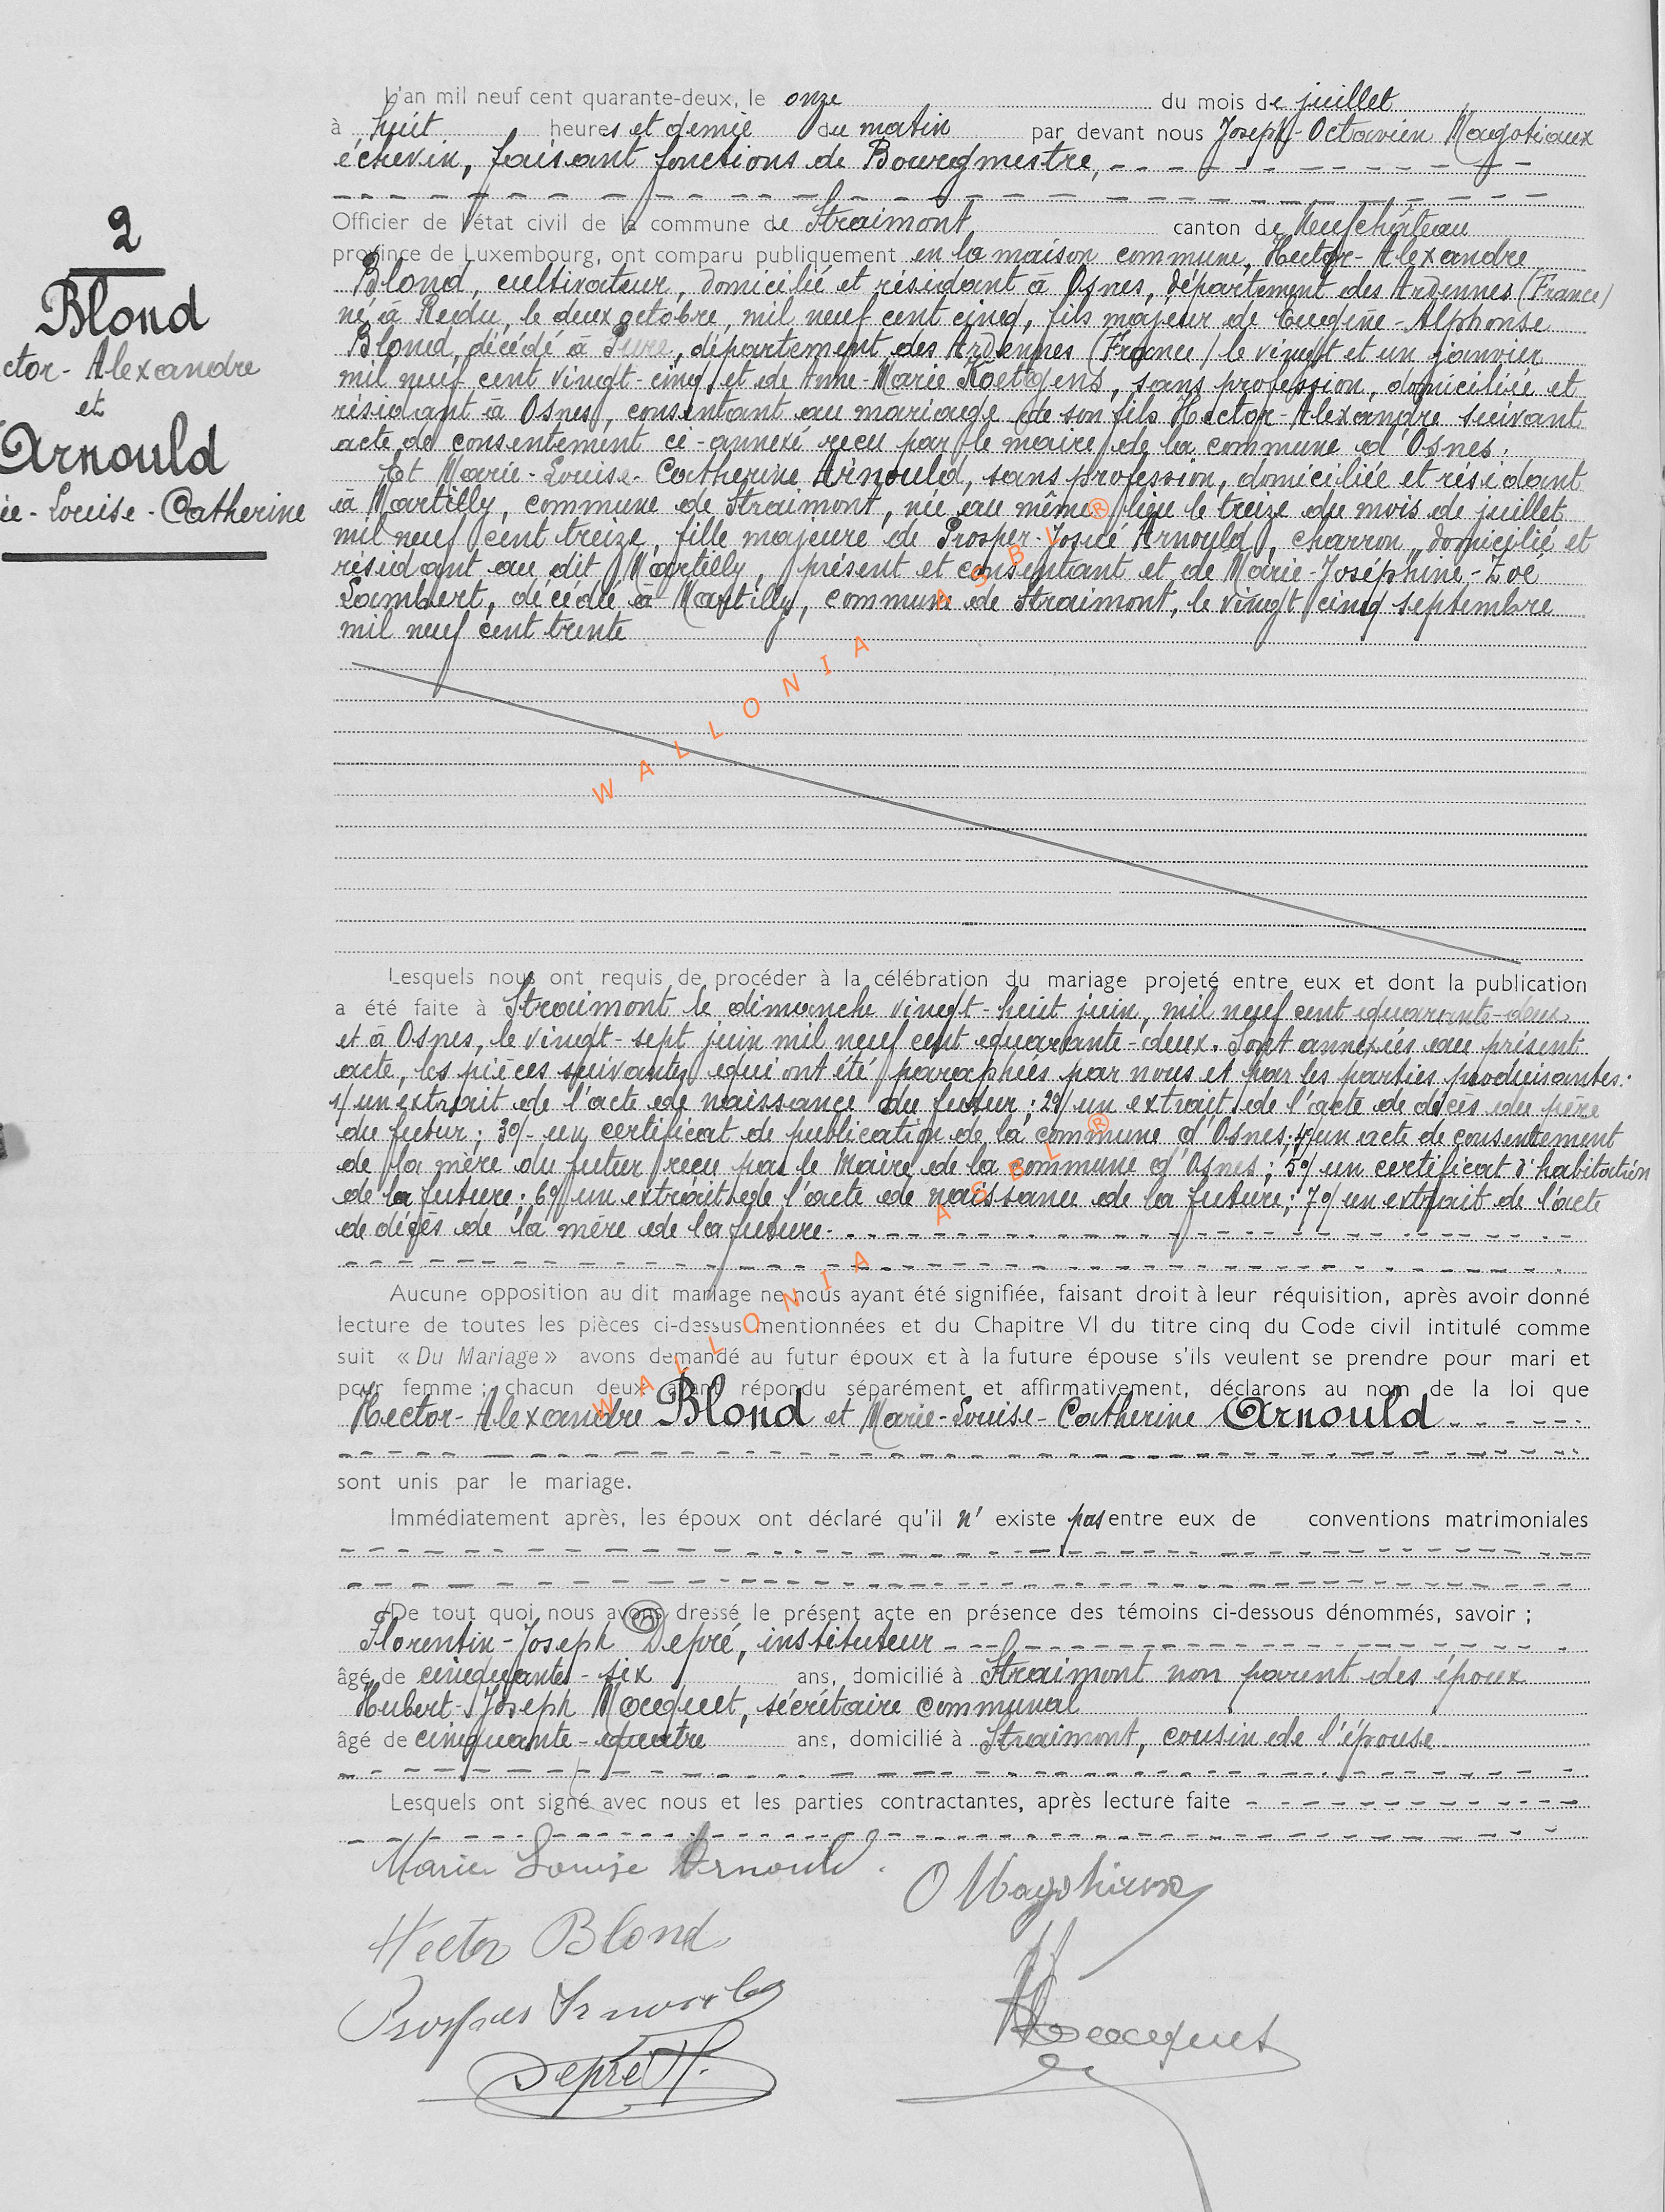 L'an mil neuf cent quarante-deux, le onze du mois de juillet
à huit heures et demie du matin par devant nous Joseph-Octavien Magotiaux
échevin, faisant fonctions de Bourgmestre,
Officier de l'état civil de la commune de Straimont canton de Neufchâteau
province de Luxembourg, ont comparu publiquement en la maison commune, Hector-Alexandre
Blond, cultivateur, domicilié et résidant à Osnes, département des Ardennes (France)
né à Redu, le deux octobre, mil neuf cent cinq, fils majeur de Eugène-Alphonse
Blond, décédé à, département des Ardennes (France) le vingt et un janvier
mil neuf cent vingt-cinq et de Anne-Marie, sans profession, domiciliée et
résidant à Osnes, consentant au mariage de son fils Hector-Alexandre suivant
acte de consentement ci-annexé reçu par le maire de la commune d'Osnes.
Et Marie-Louise-Catherine Arnould, sans profession, domiciliée et résidant
à Martilly, commune de Straimont, née au même lieu le treize du mois de juillet
mil neuf cent treize, fille majeure de Prosper-Josué Arnould, charron, domicilié et
résidant au dit Martilly, présent et consentant et de Marie-Joséphine-Zoé
Lambert, décédée à Martilly, commune de Straimont, le vingt cinq septembre
mil neuf cent trente
2
Blond
ctor-Alexandre
et
Arnould
ie-Louise-Catherine
WALLONIA ASBL®
Lesquels nous ont requis de procéder à la célébration du mariage projeté entre eux et dont la publication
a été faite à Straimont le dimanche vingt-huit juin, mil neuf cent quarante-deux
et à Osnes, le vingt-sept juin mil neuf cent quarante-deux. Sont annexées au présent
acte, les pièces suivantes qui ont été paraphées par nous et par les parties produisantes:
1/ un extrait de l'acte de naissance du futur; 2°/ un extrait de l'acte de décès du père
du futur; 3°/- un certificat de publication de la commune d'Osnes; 4°/ un acte de consentement
de la mère du futur reçu par le Maire de la commune d'Osnes; 5°/ un certificat d'habitation
de la future; 6°/ un extrait de l'acte de naissance de la future; 7°/ un extrait de l'acte
de décès de la mère de la future.
WALLONIA ASBL®
Aucune opposition au dit mariage ne nous ayant été signifiée, faisant droit à leur réquisition, après avoir donné
lecture de toutes les pièces ci-dessus mentionnées et du Chapitre VI du titre cinq du Code civil intitulé comme
suit « Du Mariage » avons demandé au futur époux et à la future épouse s'ils veulent se prendre pour mari et
pour femme; chacun deux ayant répondu séparément et affirmativement, déclarons au nom de la loi que
Hector-Alexandre Blond et Marie-Louise-Catherine Arnould
sont unis par le mariage.
Immédiatement après, les époux ont déclaré qu'il n' existe pas entre eux de conventions matrimoniales
De tout quoi nous avons dressé le présent acte en présence des témoins ci-dessous dénommés, savoir ;
Florentin-Joseph Depré, instituteur
âgé de cinquante-six ans, domicilié à Straimont non parent des époux
Hubert-Joseph Nocquet, sécrétaire communal
âgé de cinquante-quatre ans, domicilié à Straimont, cousin de l'épouse
Lesquels ont signé avec nous et les parties contractantes, après lecture faite
Marie Louise Arnould.
O Magotiaux
Hector Blond
Prosper Arnould
Depré